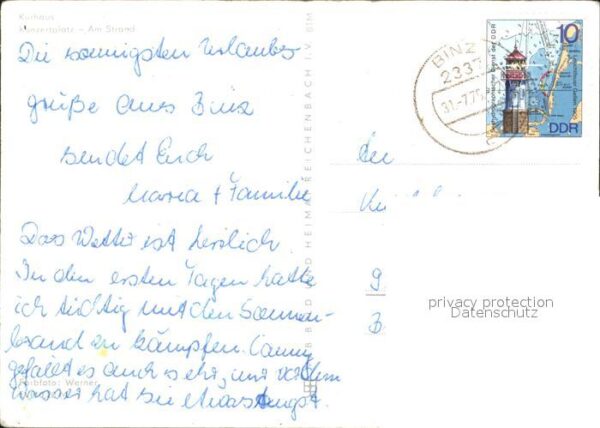 Kurhaus
Konzertplatz – Am Strand
Die sonnigsten Urlaubs-
grüße aus Binz
sendet Euch
Maria + Familie
Das Wetter ist herrlich.
In den ersten Tagen hatte
ich tüchtig mit den Sonnen-
brand zu kämpfen.
gefällt es auch sehr, nur vor dem
Wasser hat sie etwas Angst.
Farbfoto: Werner
BILD UND HEIMAT REICHENBACH I.V.
BINZ
2337
31.-7.7
10
DDR
privacy protection
Datenschutz